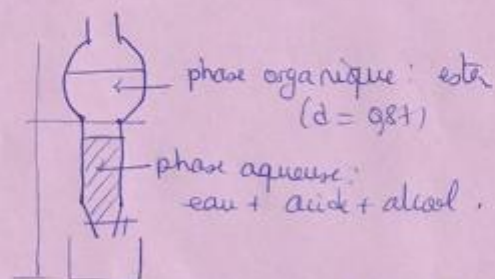 phase organique : ester
(d = 0,87)
phase aqueuse :
eau + acide + alcool .